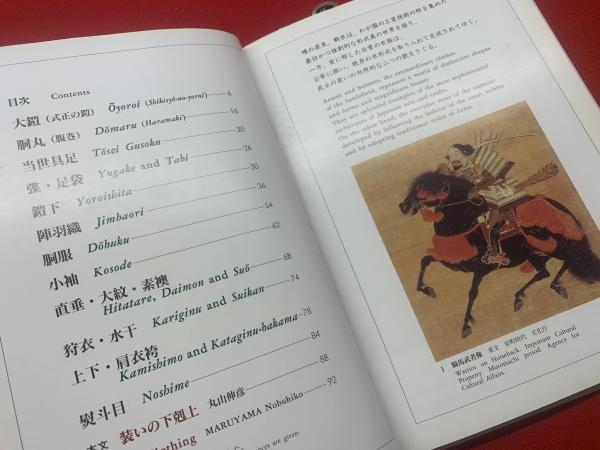 目次 Contents
大鎧（式正の鎧） Ōyoroi (Shikiyō-no-yoroi) 6
胴丸（腹巻） Dōmaru (Haramaki) 16
当世具足 Tōsei Gusoku 20
弽・足袋 Yugake and Tabi 26
鎧下 Yoroishita 30
陣羽織 Jimbaori 36
胴服 Dōbuku 54
小袖 Kosode 62
直垂・大紋・素襖
Hitatare, Daimon and Suō 68
狩衣・水干 Kariginu and Suikan 74
上下・肩衣袴
Kamishimo and Kataginu-bakama 78
熨斗目 Noshime 84
88
本文 装いの下剋上 丸山伸彦
Clothing MARUYAMA Nobuhiko 92
pieces are given.
唯の武具、戦衣は、わが国の工芸技術の粋を集めた
豪壮かつ独創的な形式美の世界を語り、
一方、実に即した日常の衣服は、
公家に倣い、既存の衣形式を取り入れて完成されてゆく。
武士の装いの対照的な二つの観をさぐる。
Armor and helmets, the extraordinary clothes
of the battlefield, represent a world of distinctive shapes
and forms and magnificent beauty.
They are splendid examples of the most sophisticated
techniques of Japanese arts and crafts.
On the other hand, the everyday wear of the samurai
developed by following the fashion of the court nobles
and by adopting traditional styles of dress.
1 騎馬武者像 重文 室町時代 文化庁
Warrior on Horseback. Important Cultural
Property. Muromachi period. Agency for
Cultural Affairs.